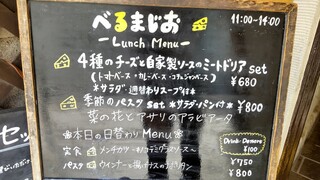 べるまじお
11:00-14:00
-Lunch Menu-
4種のチーズと自家製ソースのミートドリア set
(トマトベース・カレーベース・コチュジャンベース)
*サラダ・週替わりスープ付* ¥680
季節のパスタ set *サラダ・パン付* ¥800
菜の花とアサリのアラビアータ
本日の日替わり Menu
Drink・Demore
¥100
定食 メンチカツ ~デミグラスソース~ ¥750
パスタ ウインナーと揚げナスのナポリタン ¥800
セッ